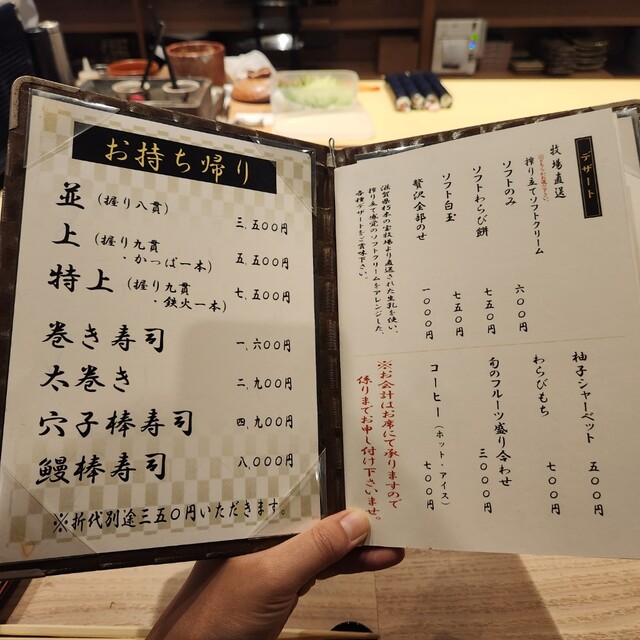 お持ち帰り
並（握り八貫）
三、五〇〇円
上（握り九貫
・かっぱ一本）
五、五〇〇円
特上（握り九貫
・鉄火一本）
七、五〇〇円
巻き寿司
一、六〇〇円
太巻き
二、九〇〇円
穴子棒寿司
四、九〇〇円
鰻棒寿司
八、〇〇〇円
※折代別途三五〇円いただきます。
デザート
牧場直送
搾り立てソフトクリーム
ソフトのみ
六〇〇円
ソフトわらび餅
七五〇円
ソフト白玉
七五〇円
贅沢全部のせ
一〇〇〇円
滋賀県朽木の宝牧場より直送された生乳を使い、
搾り立て感覚のソフトクリームをアレンジした、
各種デザートをご賞味下さい。
柚子シャーベット
五〇〇円
わらびもち
七〇〇円
旬のフルーツ盛り合わせ
三〇〇〇円
コーヒー（ホット・アイス）
七〇〇円
※お会計はお席にて承りますので
係りまでお申し付け下さいませ。